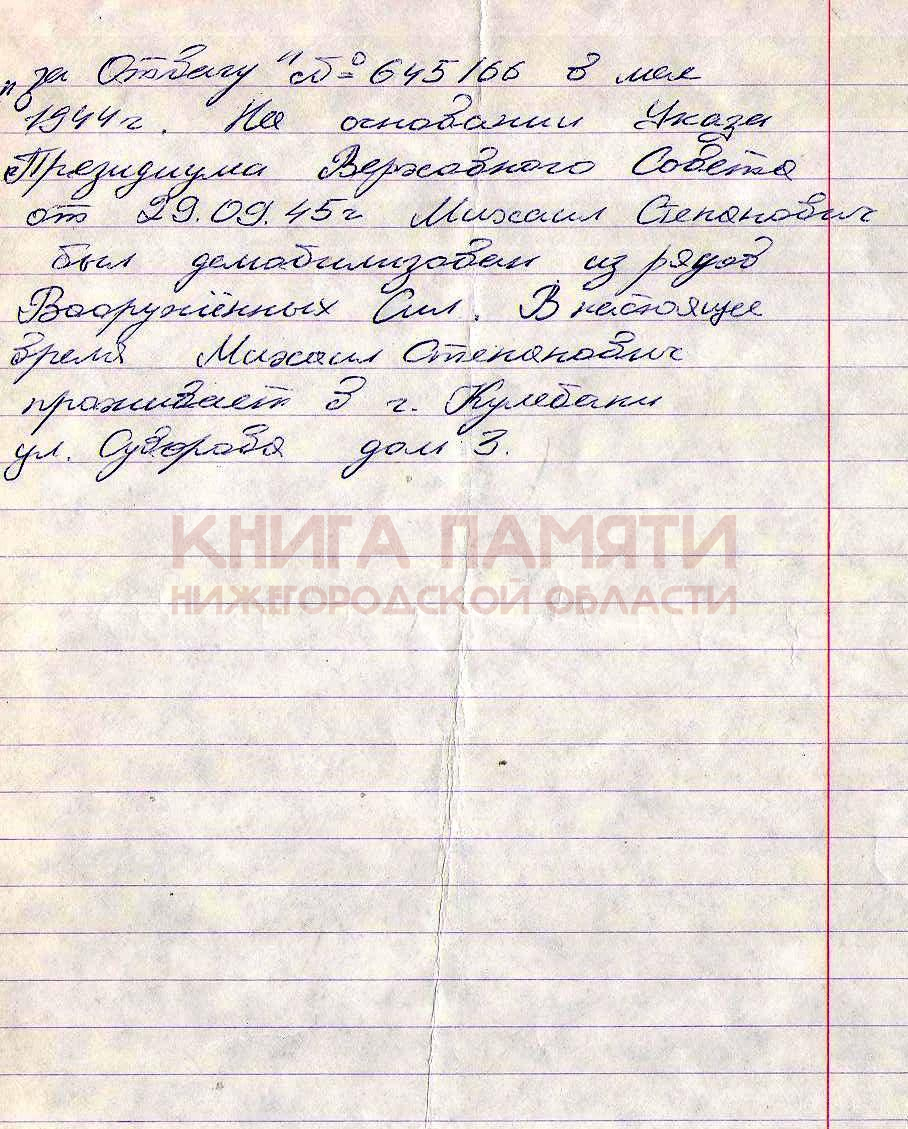 „за Отвагу" № 645166 в мае
1944г. На основании Указа
Президиума Верховного Совета
от 29.09.45г Михаил Степанович
был демобилизован из рядов
Вооружённых Сил. В настоящее
время Михаил Степанович
проживает в г. Кулебаки
ул. Суворова дом 3.
КНИГА ПАМЯТИ
НИЖЕГОРОДСКОЙ ОБЛАСТИ